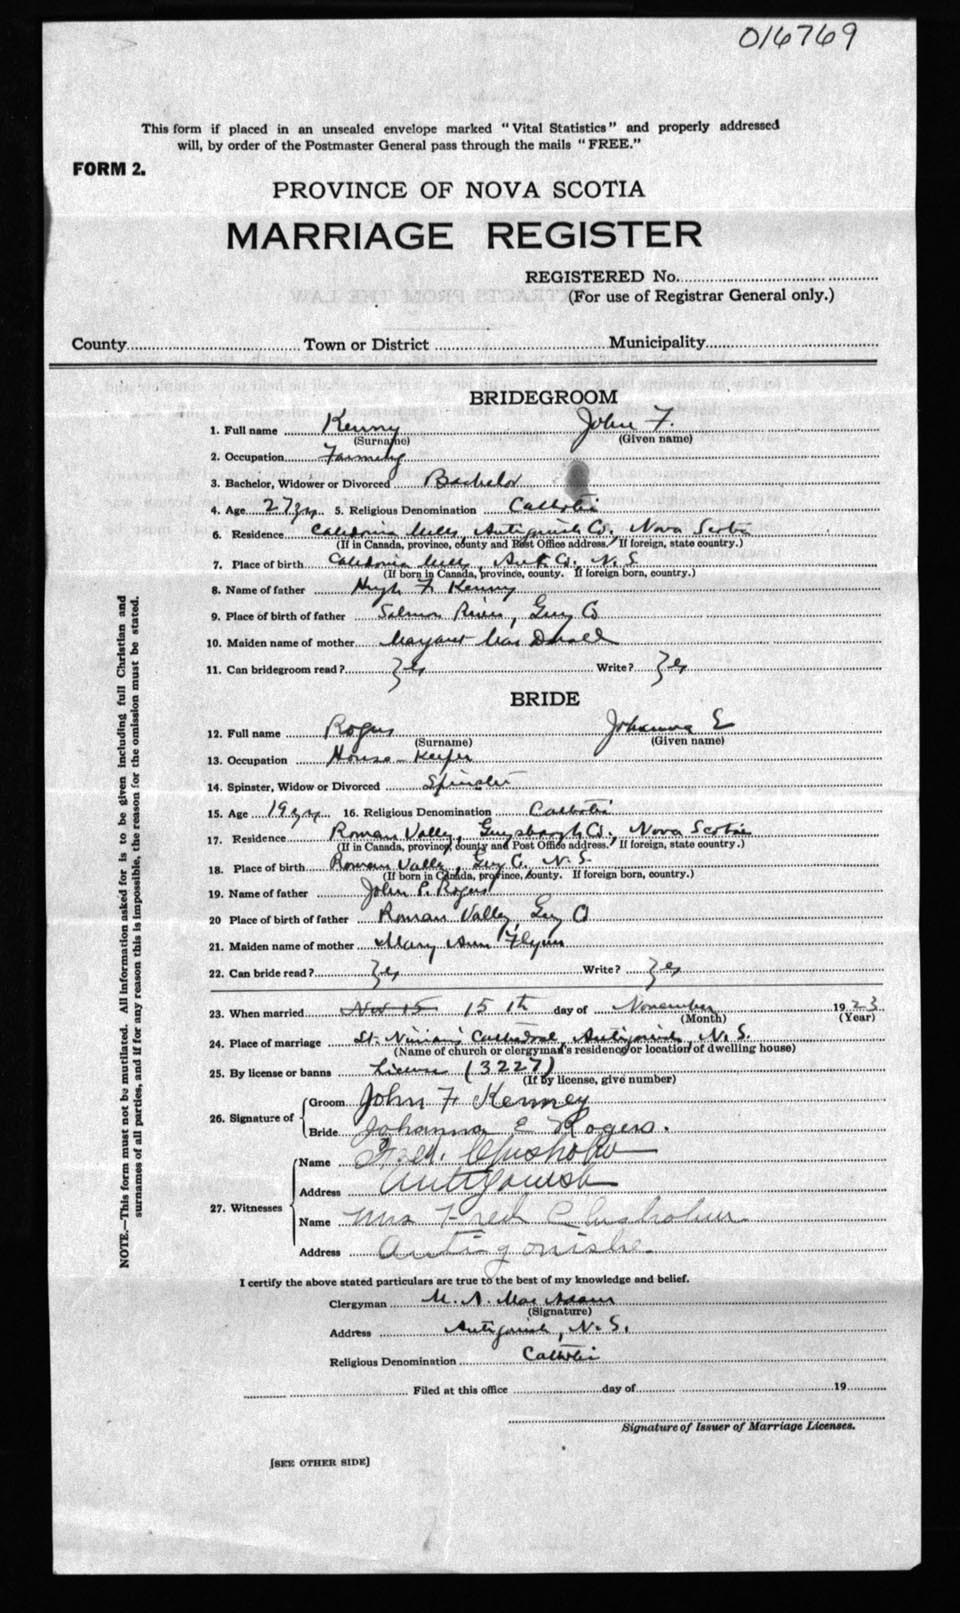 016769
This form if placed in an unsealed envelope marked "Vital Statistics" and properly addressed
will, by order of the Postmaster General pass through the mails "FREE."
FORM 2.
PROVINCE OF NOVA SCOTIA
MARRIAGE REGISTER
REGISTERED No.
(For use of Registrar General only.)
County Town or District Municipality
BRIDEGROOM
1. Full name Kenny John F.
(Surname) (Given name)
2. Occupation Farming
3. Bachelor, Widower or Divorced Bachelor
4. Age 27 yrs 5. Religious Denomination Catholic
6. Residence Caledonia Mills, Antigonish Co, Nova Scotia
(If in Canada, province, county and Post Office address. If foreign, state country.)
7. Place of birth Caledonia Mills, Ant. Co. N. S.
(If born in Canada, province, county. If foreign born, country.)
8. Name of father Hugh F. Kenny
9. Place of birth of father Salmon River, Guy Co
10. Maiden name of mother Margaret Mac Donald
11. Can bridegroom read? Yes Write? Yes
BRIDE
12. Full name Rogers Johanna E
(Surname) (Given name)
13. Occupation House-Keeper
14. Spinster, Widow or Divorced Spinster
15. Age 19 yrs 16. Religious Denomination Catholic
17. Residence Roman Valley, Guysborough Co., Nova Scotia
(If in Canada, province, county and Post Office address. If foreign, state country.)
18. Place of birth Roman Valley, Guy Co. N. S.
(If born in Canada, province, county. If foreign born, country.)
19. Name of father John P. Rogers
20 Place of birth of father Roman Valley, Guy Co
21. Maiden name of mother Mary Ann Flynn
22. Can bride read? Yes Write? Yes
23. When married Nov 15 15th day of November 1923
(Month) (Year)
24. Place of marriage St. Ninian's Cathedral, Antigonish, N. S.
(Name of church or clergyman's residence or location of dwelling house)
25. By license or banns License (3227)
(If by license, give number)
26. Signature of Groom John F Kenney
Bride Johanna E Rogers.
27. Witnesses Name Fred. Chisholm
Address Antigonish
Name Mrs Fred Chisholm
Address Antigonishe.
I certify the above stated particulars are true to the best of my knowledge and belief.
Clergyman M. A. Mac Adam
(Signature)
Address Antigonish, N. S.
Religious Denomination Catholic
Filed at this office day of 19
Signature of Issuer of Marriage Licenses.
[SEE OTHER SIDE]
NOTE.—This form must not be mutilated. All information asked for is to be given including full Christian and
surnames of all parties, and if for any reason this is impossible, the reason for the omission must be stated.